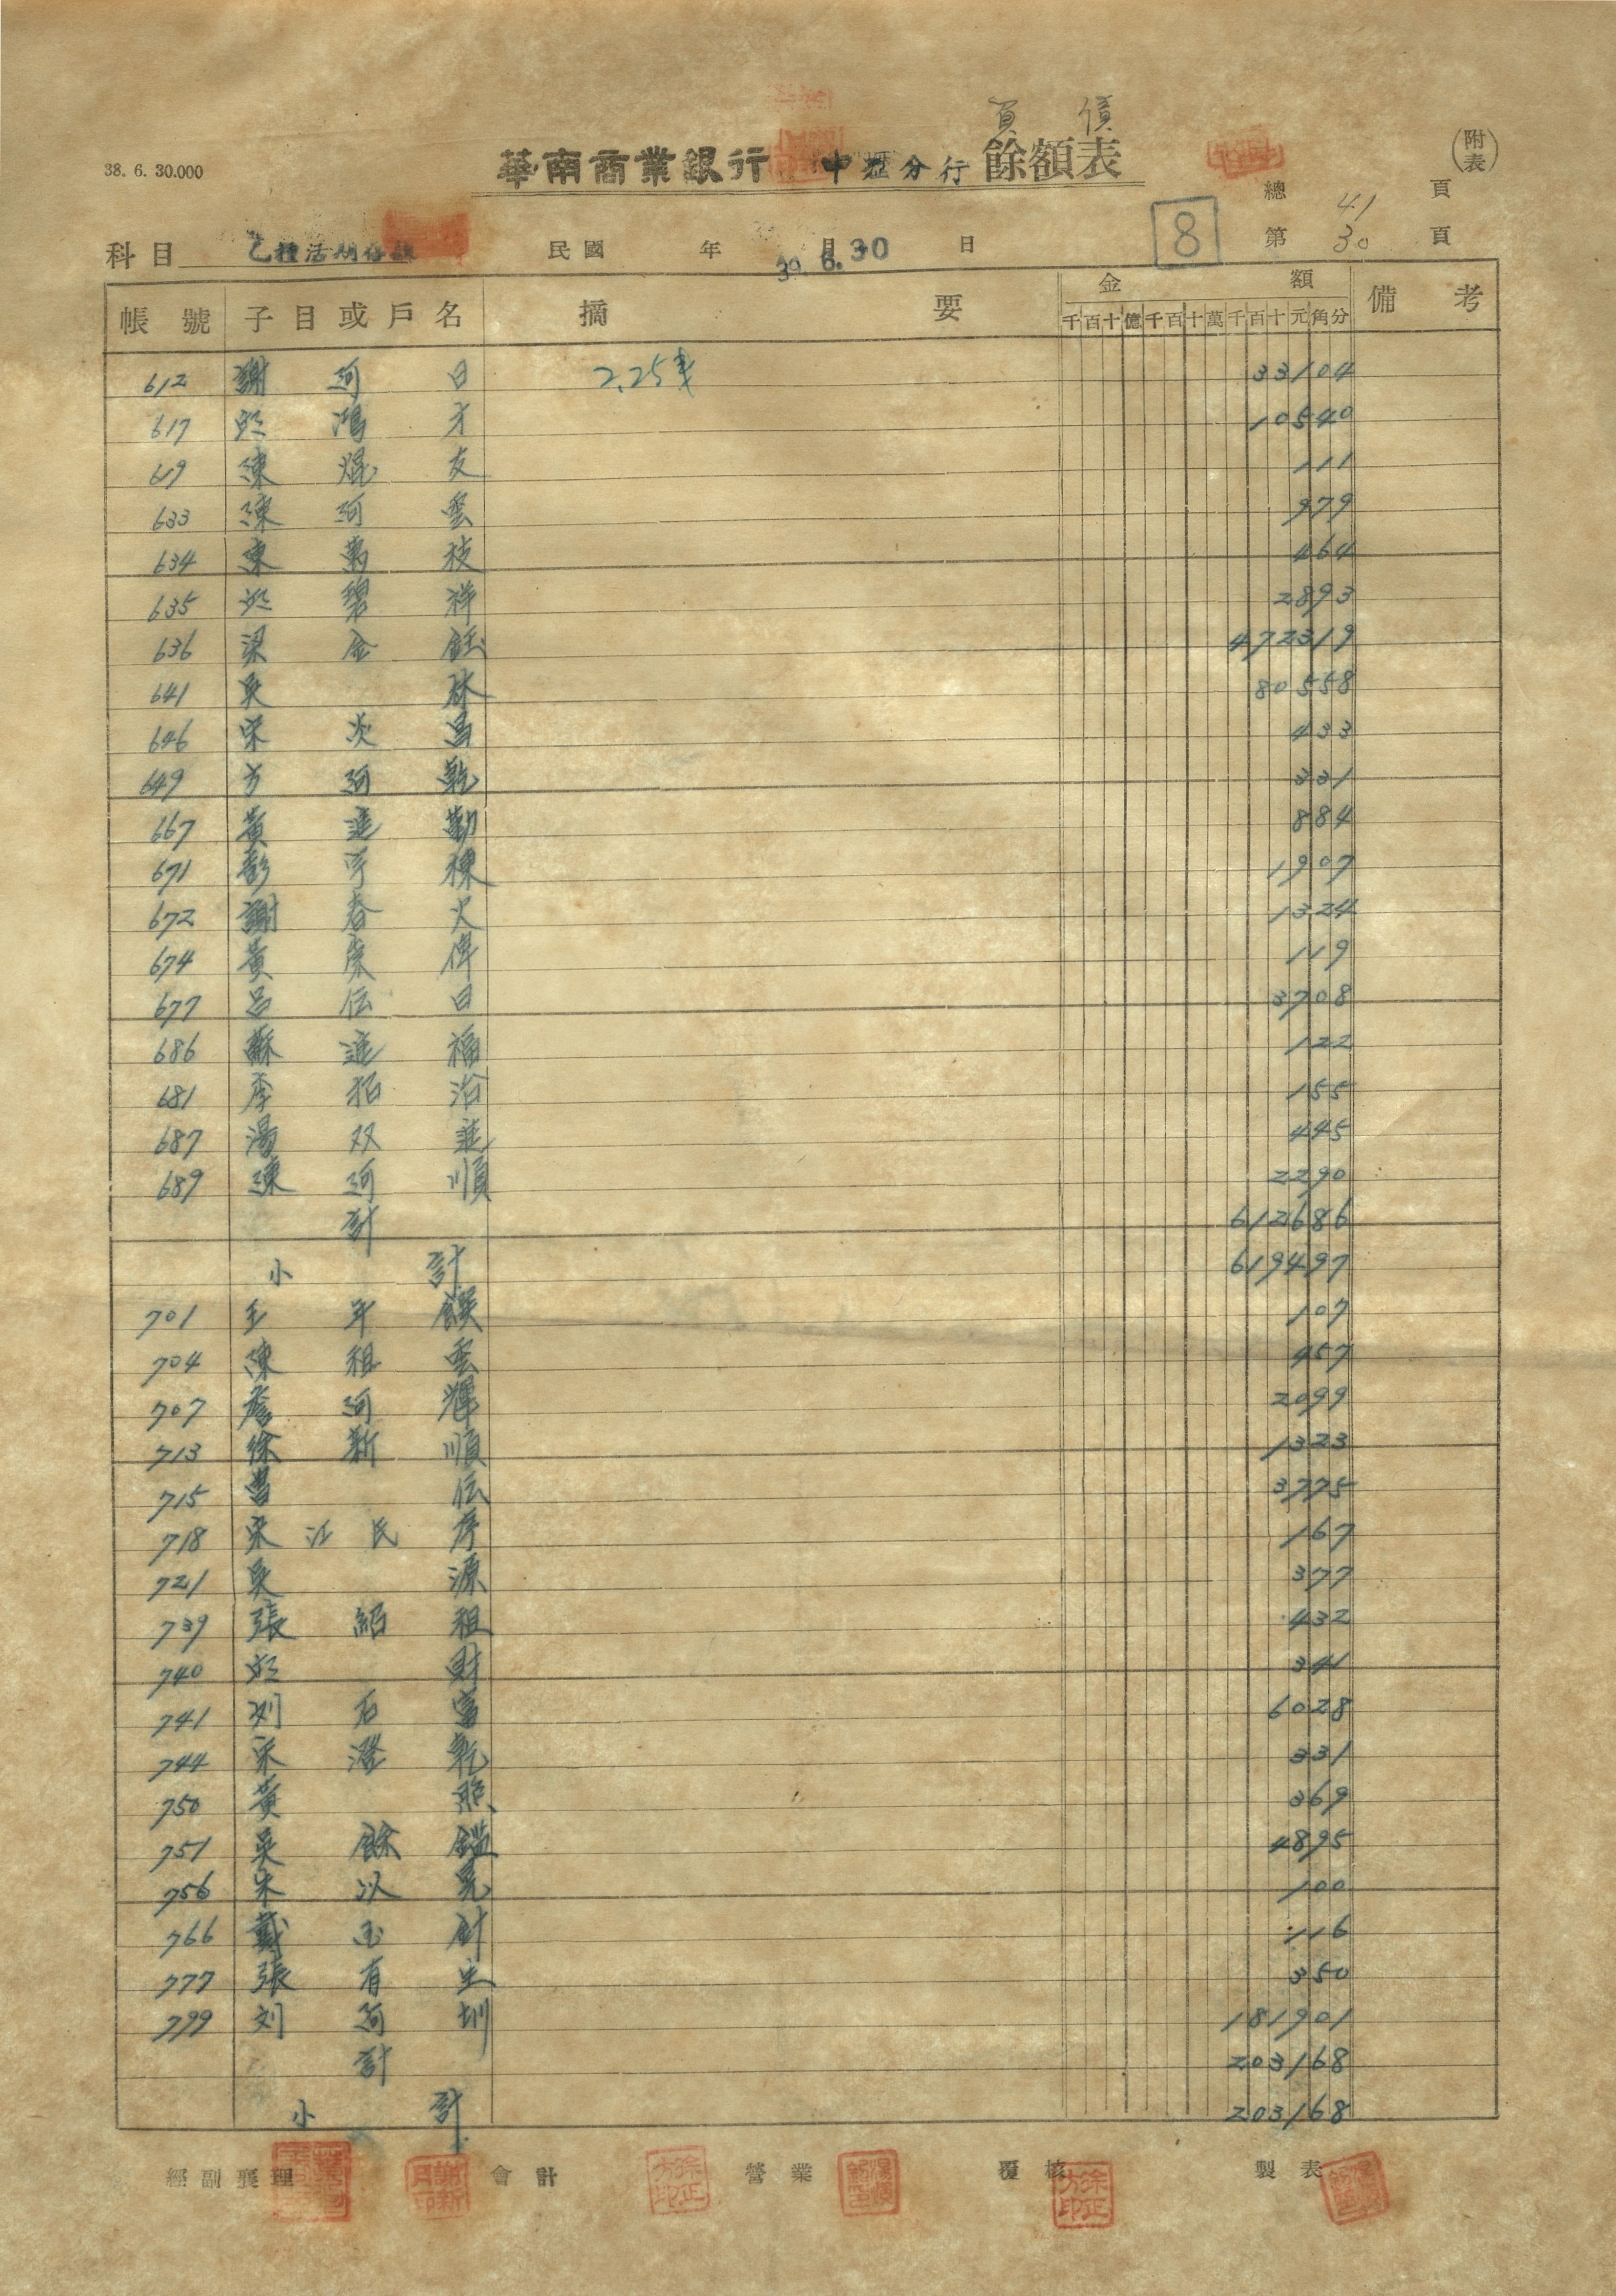 負債
38. 6. 30.000 華南商業銀行 中壢分行 餘額表 (附表)
總 41 頁
科目 乙種活期存款 民國 年 月 日 39. 6. 30 8 第 30 頁
帳號 子目或戶名 摘要 金額 備考
千百十億千百十萬千百十元角分
612 謝阿日 2.25 33104
617 鴻才 10540
619 陳焜友 111
633 陳阿雲 979
634 東萬枝 464
635 碧祥 2893
636 梁金鈺 472319
641 吳林 80558
646 宋炎昌 433
649 方阿乾 331
667 黃進勤 884
671 彭阿棟 1907
672 謝春火 1324
674 黃陳偉 119
677 呂伝日 3708
686 蘇進福 122
681 李招浴 155
687 湯双 445
689 陳阿順 2290
計 612686
小計 619497
701 王年 107
704 陳祖雲 457
707 詹阿輝 2099
713 徐新順 1323
715 伝 3775
718 宋江氏 167
721 吳源 377
739 張紹祖 432
740 財 341
741 刘石富 6028
744 宋澄乾 331
750 黃照 369
751 吳餘鎰 4895
756 朱以晃 100
766 戴玉 116
777 張有 350
799 刘阿圳 181901
計 203168
小計 203168
經副襄理 會計 營業 覆核 製表